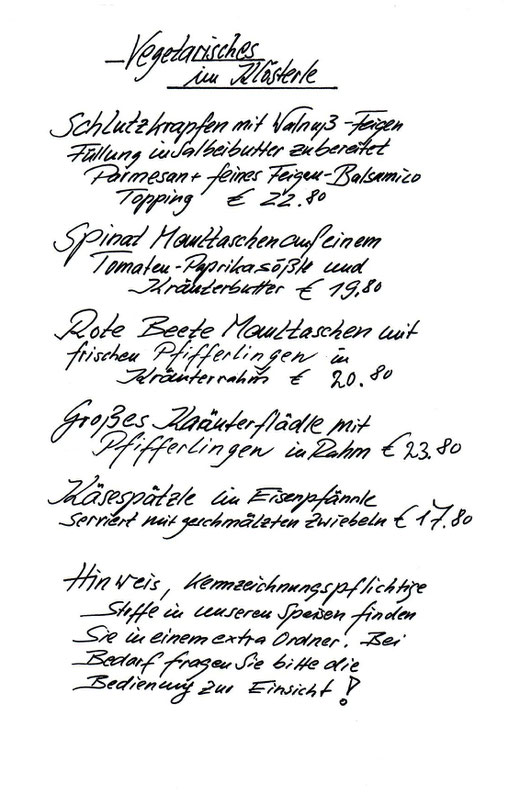 Vegetarisches
im Klösterle
Schlutzkrapfen mit Walnuß-Feigen
Füllung in Salbeibutter zubereitet
Parmesan + feines Feigen-Balsamico
Topping € 22.80
Spinat Maultaschen auf einem
Tomaten-Paprikasößle und
Kräuterbutter € 19.80
Rote Beete Maultaschen mit
frischen Pfifferlingen in
Kräuterrahm € 20.80
Großes Kräuterflädle mit
Pfifferlingen in Rahm € 23.80
Käsespätzle im Eisenpfännle
serviert mit geschmälzten Zwiebeln € 17.80
Hinweis, Kennzeichnungspflichtige
Stoffe in unseren Speisen finden
Sie in einem extra Ordner. Bei
Bedarf fragen Sie bitte die
Bedienung zur Einsicht!